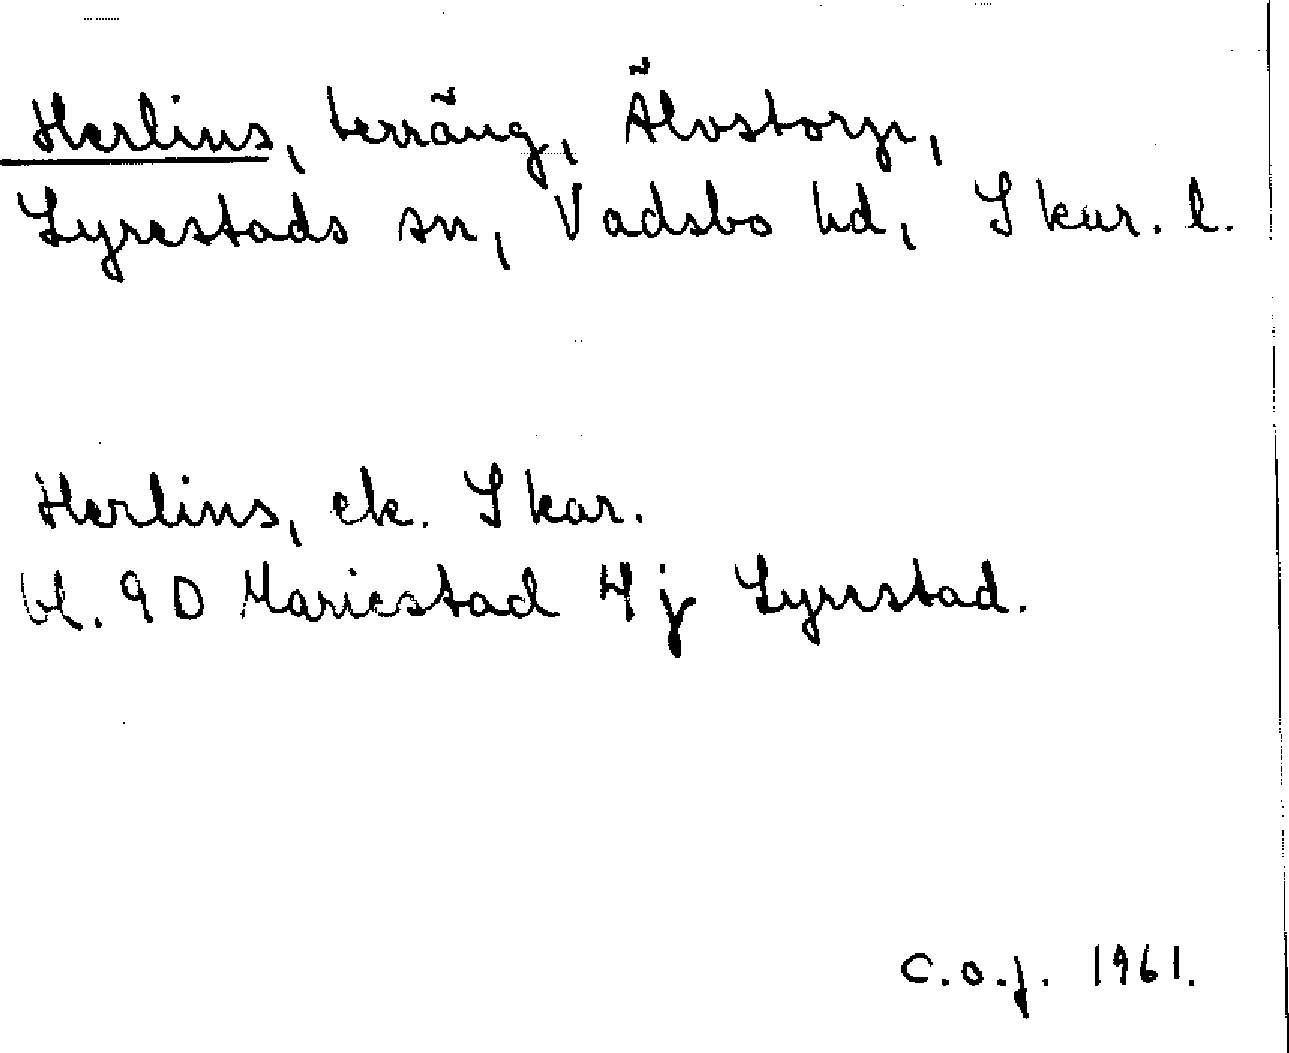 Herlins, terräng, Älvstorp,
Lyrestads sn, Vadsbo hd, Skar. l.
Herlins, ek. Skar.
bl. 9D Mariestad 4j Lyrestad.
C.O.J. 1961.